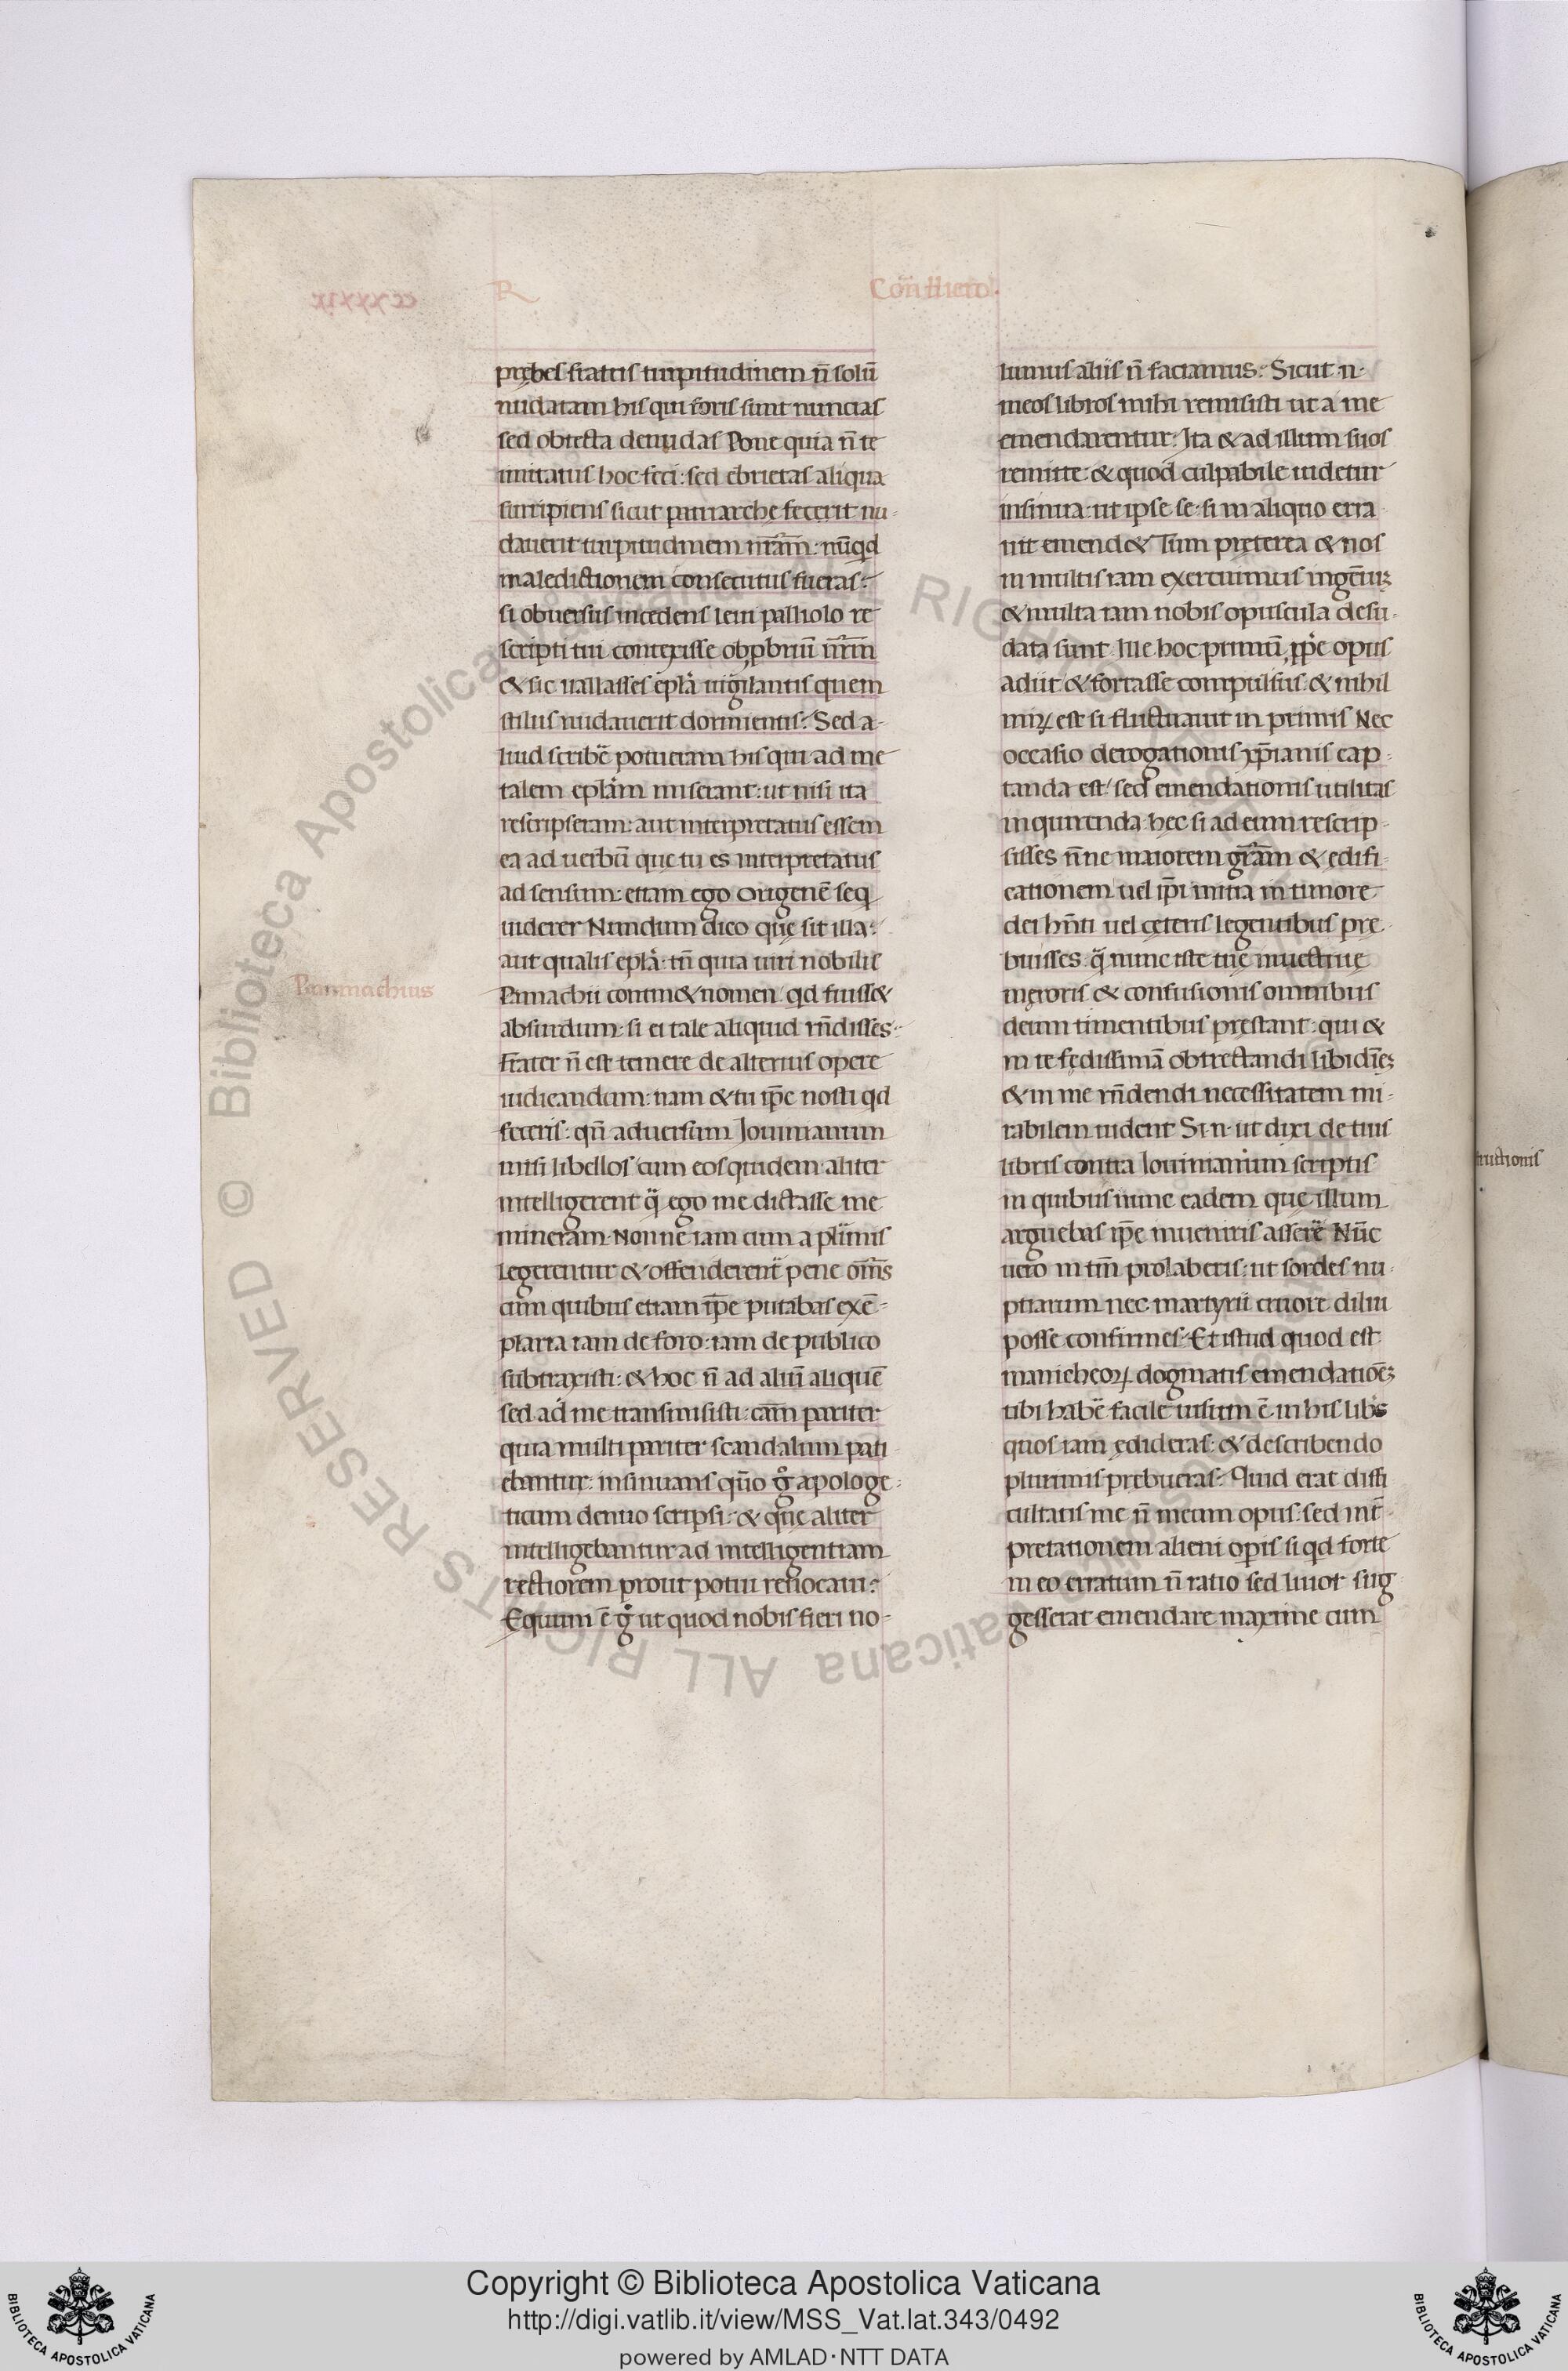 R
Cõn Hiero.
p̄ebes fratris turpitudinem n̄ solū
nudatam his qui foris sunt nuncias
sed obtecta denudas Pone quia n̄ te
imitatus hoc feci: sed ebrietas aliqua
surripiens sicut patriarchę fecerit nu-
dauerit turpitudinem nr̄am: nūqd
maledictionem consecutus fueras:
si obuersus incedens leui palliolo re
scripti tui contexisse obp̄briū nr̄m
& sic uallasses epl̄a uigilantis quem
stilus nudauerit dormientis: Sed a-
liud scribē potueram his qui ad me
talem epl̄am miserant: ut nisi ita
rescripseram: aut interpretatus essem
ea ad uerbū que tu es interpretatus
ad sensum: etiam ego origenē seq
uiderer Nundum dico quę sit illa:
aut qualis epl̄a: tn̄ quia uiri nobilis
Pamachii contin& nomen. qd fuiss&
absurdum: si ei tale aliquid rn̄disses:
Frater n̄ est temere de alterius opere
iudicandum: nam & tu ip̄e nosti qd
feceris: qn̄ aduersum Iouinianum
misi libellos cum eos quidem aliter
intelligerent q̄ ego me dictasse me
mineram. Nonne iam cum a plurimis
legerentur & offenderent̄ pene om̄s
cum quibus etiam ip̄e putabas exē-
plaria iam de foro: iam de publico
subtraxisti: & hoc n̄ ad aliū aliquē
sed ad me transmisisti: eam̄ pariter
quia multi pariter scandalum pati
ebantur: insinuans quō g̊ apologe-
ticum denuo scripsi: & quę aliter
intelligebantur ad intelligentiam
rectiorem prout potui reuocaui:
Equum ē g̊ ut quod nobis fieri no-
Panmachius
lumus aliis n̄ faciamus: Sicut .n.
meos libros mihi remisisti ut a me
emendarentur: Ita & ad illum suos
remitte: & quod culpabile uidetur
insinua: ut ipse se: si in aliquo erra
uit emend& Tum pręterea & nos
in multis iam exercuimus ingeniū
& multa iam nobis opuscula desu-
data sunt. Ille hoc primū p̄pe opus
adiit & fortasse compulsus: & nihil
mirꝝ est si fluctuauit in primis Nec
occasio derogationis xp̄ianis cap-
tanda est: sed emendationis utilitas
inquirenda: hec si ad eum rescrip-
sisses n̄ne maiorem gr̄am & edifi-
cationem uel ip̄i mitia in timore
dei hn̄ti uel cęteris legentibus prę
buisses. q̄ nunc iste tuę inuectiuę
męroris & confusionis omnibus
deum timentibus pręstant: qui &
in te fędissimā obtrectandi libidinē
& in me rn̄dendi necessitatem mi-
rabilem uident Si .n. ut dixi de tuis
libris contra Iouinianum scriptis
in quibus nunc eadem que illum
arguebas ip̄e inueniris asserē Nūc
uero in tm̄ prolaberis: ut sordes nu-
ptiarum nec martyrii cruore dilui
posse confirmes: Et istud quod est
manicheoꝝ dogmatis emendationē
tibi habē facile uisum ē: in his lib̄s
quos iam ędideras: & describendo
plurimis prebueras: Quid erat diffi
cultatis me n̄ meum opus: sed int̄-
pretationem alieni opis si qd forte
in eo erratum n̄ ratio sed liuor sug
gesserat emendare maxime cum
Copyright © Biblioteca Apostolica Vaticana
http://digi.vatlib.it/view/MSS_Vat.lat.343/0492
powered by AMLAD·NTT DATA
BIBLIOTECA APOSTOLICA VATICANA
BIBLIOTECA APOSTOLICA VATICANA
© Biblioteca Apostolica Vaticana ALL RIGHTS RESERVED